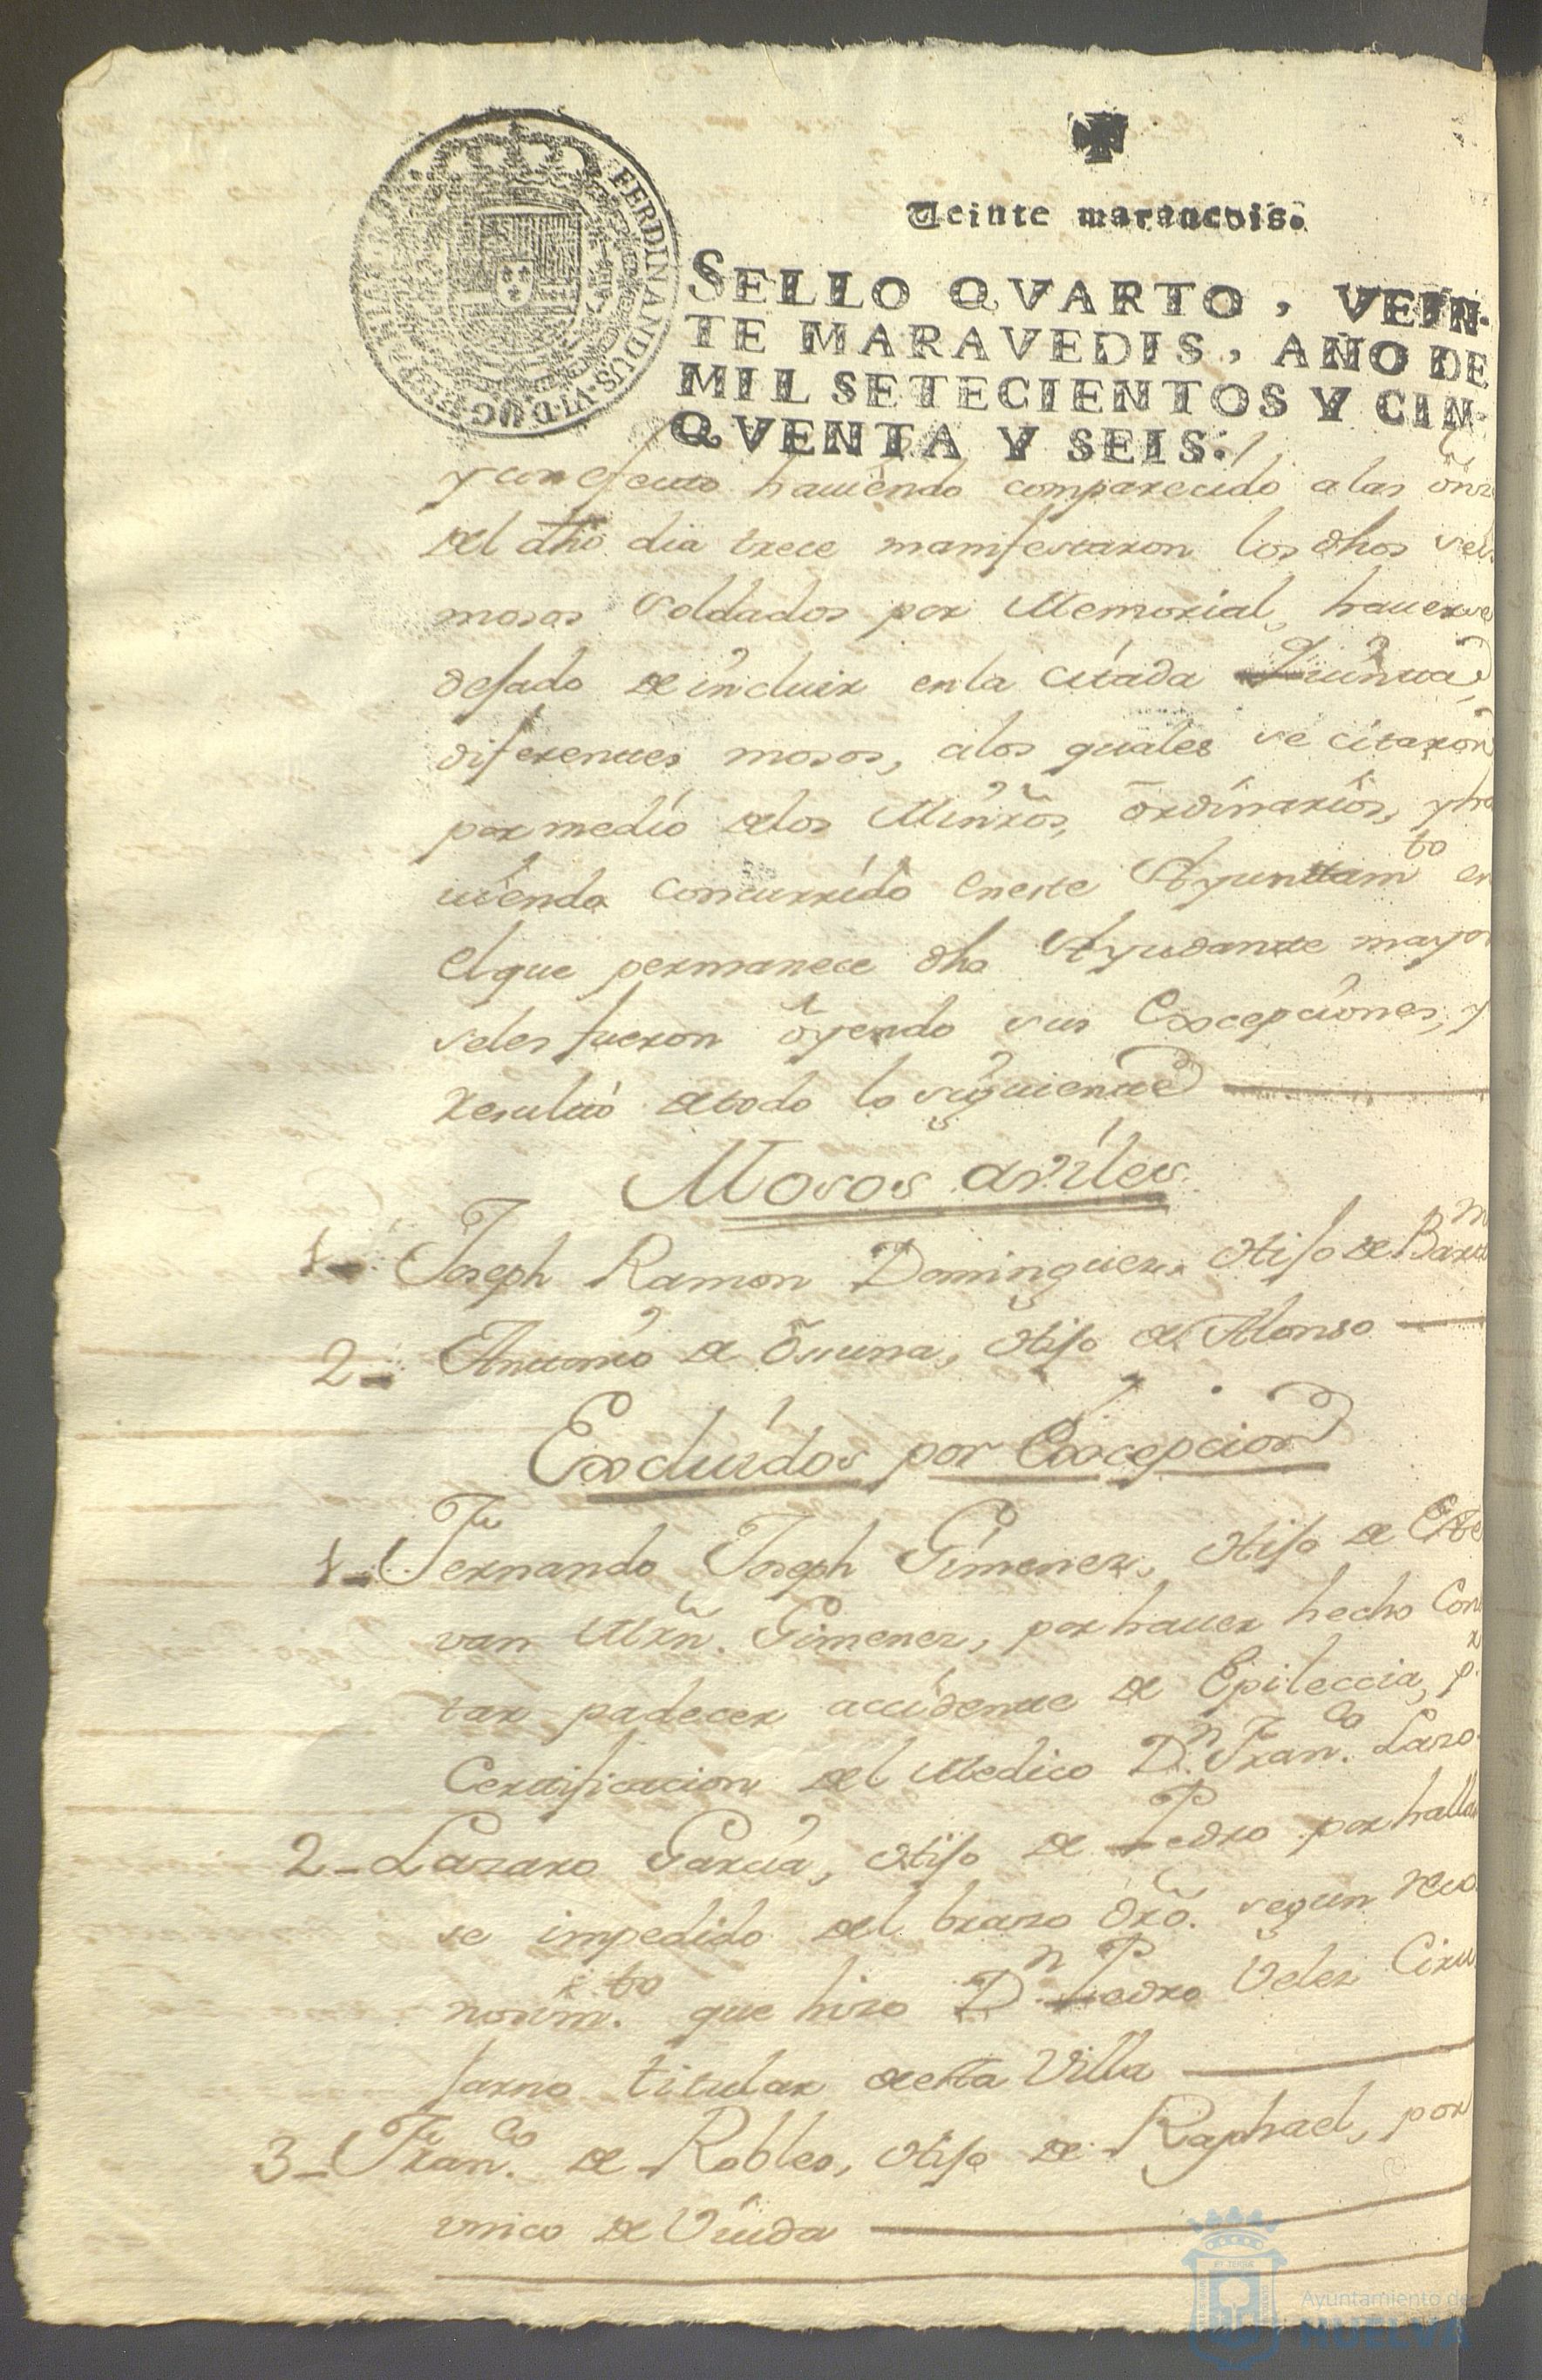 FERDINANDUS·VI·D·G·
Veinte maravedis.
SELLO QVARTO, VEIN-
TE MARAVEDIS, AÑO DE
MIL SETECIENTOS Y CIN-
QVENTA Y SEIS.
y con efecto haviendo comparecido a las onz
del dho dia trece manifestaron los dhos sei
mosos soldados por Memorial, haverse
dejado de incluir en la citada Quinta,
diferentes mosos, a los quales se citaron
por medio de los Minros, ordinarios, y ha
viendo concurrido en este Ayunttamto en
el que permanece dho Ayudante mayor
se les fueron oyendo sus Excepciones, y
resultó de todo lo siguiente
Mosos aviles
1- Joseph Ramon Dominguez, Hijo de Bartm
2- Antonio de Ossuna, Hijo de Alonso
Excluidos por Excepcion
1- Fernando Joseph Gimenez, Hijo de Este
van Mrn. Gimenez, por haver hecho Cons
tar padecer accidente de Epileccia, pr
Certificacion del Medico Dn. Franco. Lazo
2- Lazaro Garcia, Hijo de Pedro por hallar
se impedido del brazo dro. segun reco
nosimto. que hizo Dn. Pedro Velez Ciru
jano titular de esta Villa
3- Franco. de Robles, Hijo de Raphael, por
unico de Viuda
Ayuntamiento de
HUELVA